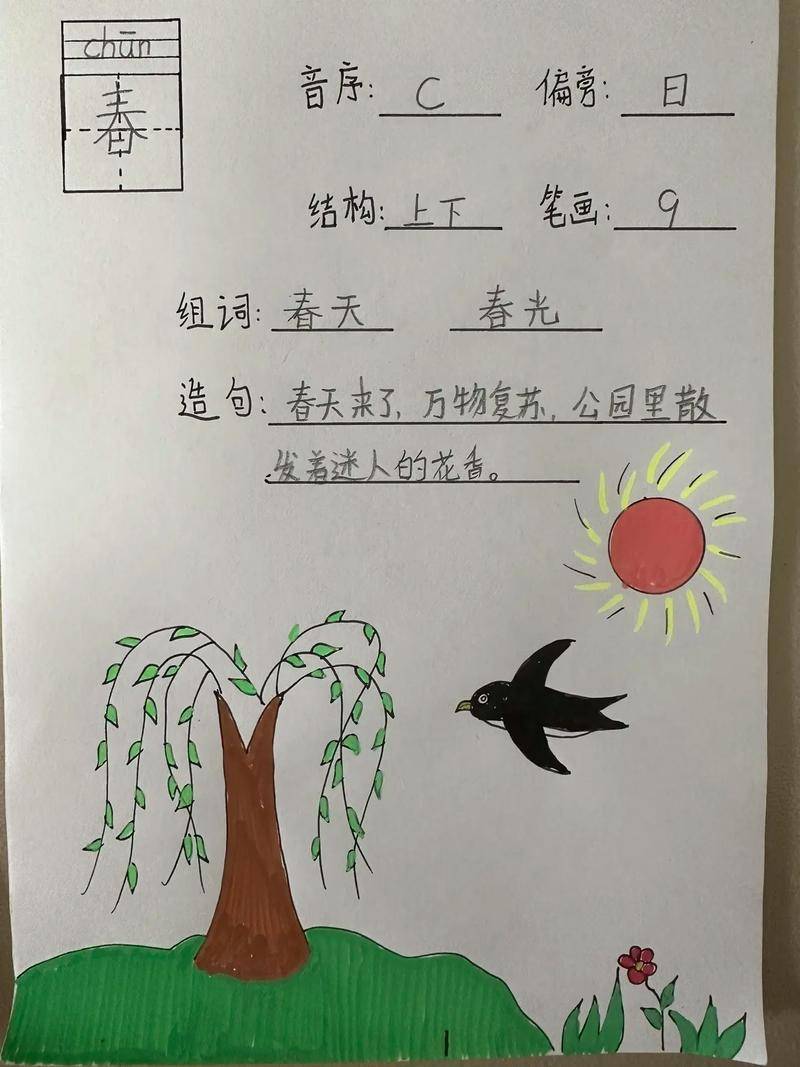 chūn
春
音序: C 偏旁: 日
结构: 上下 笔画: 9
组词: 春天 春光
造句: 春天来了, 万物复苏, 公园里散
发着迷人的花香。